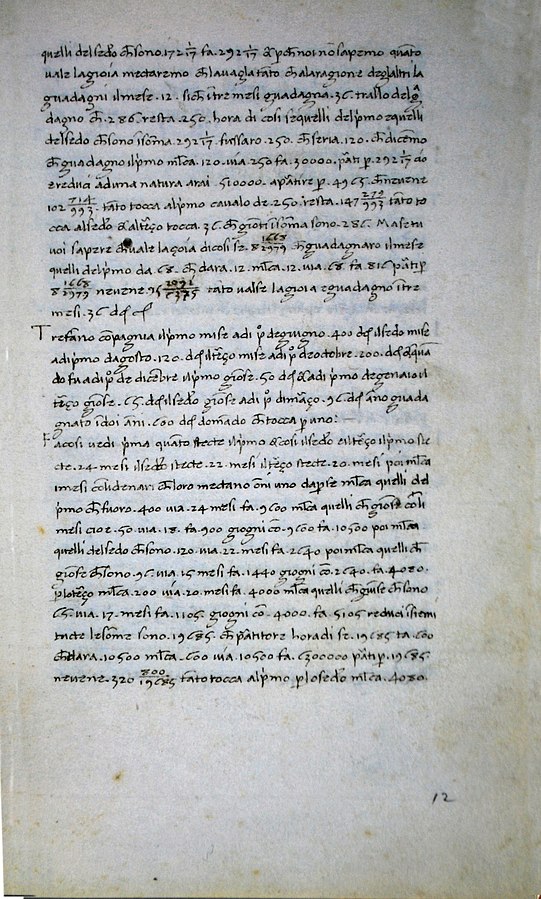 quelli del sedo ch sono .172 2/17 fa .292 2/17 & p ch noi nō sapemo quāto
vale la gioia mectaremo ch la vaglia tāto ch a la ragione degl altri la
guadagni il mese .12. sich ītre mesi guadagna .36. trallo del gua
dagno ch .286. resta .250. hora di cosi se quelli del pmo e quelli
del sedo ch sono ī soma 292 2/17 fussaro .250. ch seria .120. ch dicēmo
ch guadagno il pmo mlca .120. via .250 fa .30000. pāti p .292 2/17 cio
e reduci ad una natura arai .510000. a partire p .4965. ch ne vene
102 714/993 tāto tocca al pmo cavalo de .250. resta .147 279/993 tāto to
cca al sedo & al terço tocca .36. ch gionti ī soma sono .286. Ma se tu
voi sapere ch vale la gioia di cosi se .8 1668/2979 ch guadagnaro il mese
quelli del pmo da .68. ch dara .12. mlca .12. via .68 fa .816 pāti p
8 1668/2979 ne vene .95 tāto valse la gioia e guadagno ītre
mesi .36 dc
Tre fāno cōpagnia il pmo mise a di p° de giugno .400 dc il sedo mise
a di pmo d agosto .120. dc il terço mise a di p° de octobre .200. dc & quā
do fu a di p° de dicēbre il pmo giose .50 dc & a di pmo de genaio il
terço giose .65. dc il sedo giose a di p° di março .96 dc āno guada
gnato ī doi āni .600 dc domādo ch tocca p uno.
Fa cosi vedi pma quāto stecte il pmo & cosi il sedo e il terço il pmo ste
cte .24 mesi il sedo stecte .22. mesi il terço stecte .20. mesi poi mlca
i mesi con li denari ch loro mectano oni uno da p se mlca quelli del
pmo ch fuoro .400 via .24 mesi fa .9600 mlca quelli ch giose cō li
mesi cio e .50 via .18. fa .900 giogni cō .9600 fa .10500 poi mlca
quelli del sedo ch sono .120. via .22. mesi fa .2640 poi mlca quelli ch
giose ch sono .96 via .15 mesi fa .1440 giogni cō .2640. fa .4080.
p lo terço mlca .200 via .20 mesi fa .4000 mlca quelli ch giuse ch sono
65. via .17. mesi fa .1105. giogni cō .4000. fa .5105 reduci īsiemi
tucte le some sono .19685. ch partitore hora di se .19685 da .600
ch dara .10500 mlca .600 via .10500 fa .6300000 pāti p .19685
ne vene .320 800/19685 tāto tocca al pmo p lo sedo mlca .4080.
12